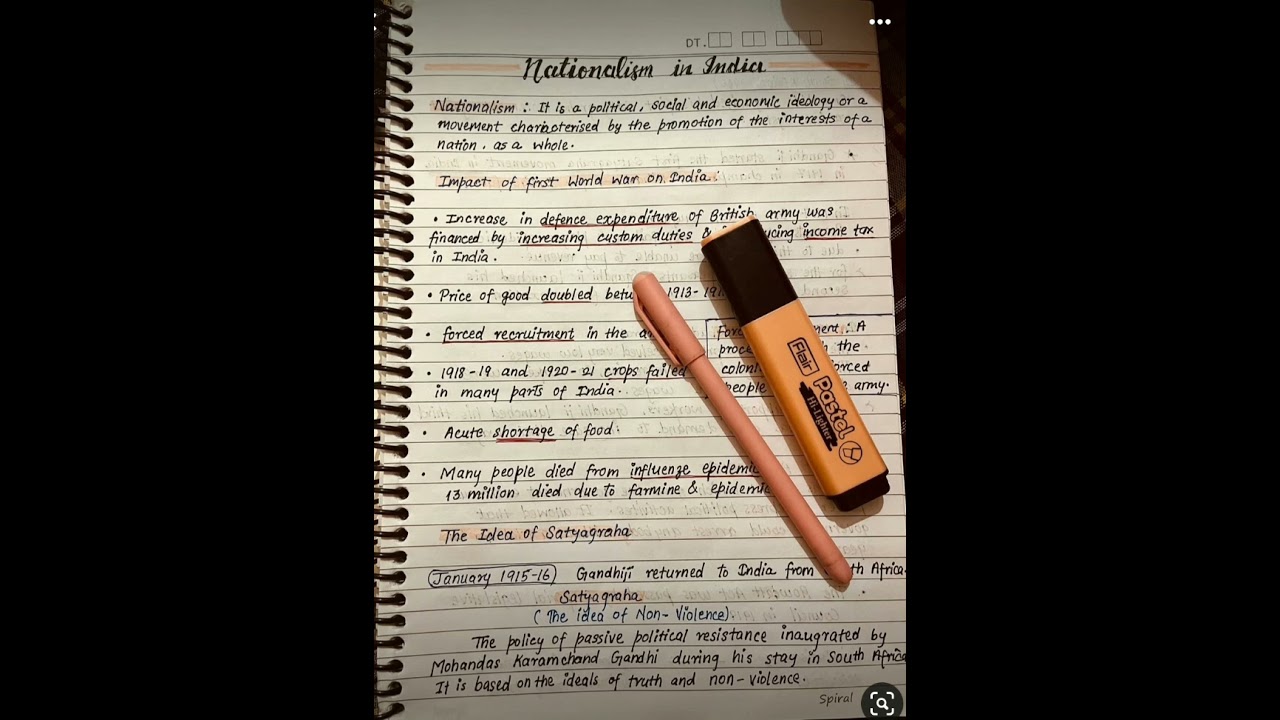 DT.
Nationalism in India
Nationalism : It is a political, social and economic ideology or a
movement characterised by the promotion of the interests of a
nation. as a whole.
Impact of first World War on India.
• Increase in defence expenditure of British army was
financed by increasing custom duties & income tax
in India.
• Price of good doubled 1913-
• forced recruitment in the
• 1918-19 and 1920-21 crops failed
in many parts of India.
: A
the
army.
• Acute shortage of food:
• Many people died from influenze
13 million died due to farmine &
The Idea of Satyagraha
January 1915-16 Gandhiji returned to India from Africa.
Satyagraha
(The idea of Non-Violence).
The policy of passive political resistance inaugrated by
Mohandas Karamchand Gandhi during his stay in South Africa
It is based on the ideals of truth and non-violence.
Spiral
Flair
Pastel
Hi-Lighter